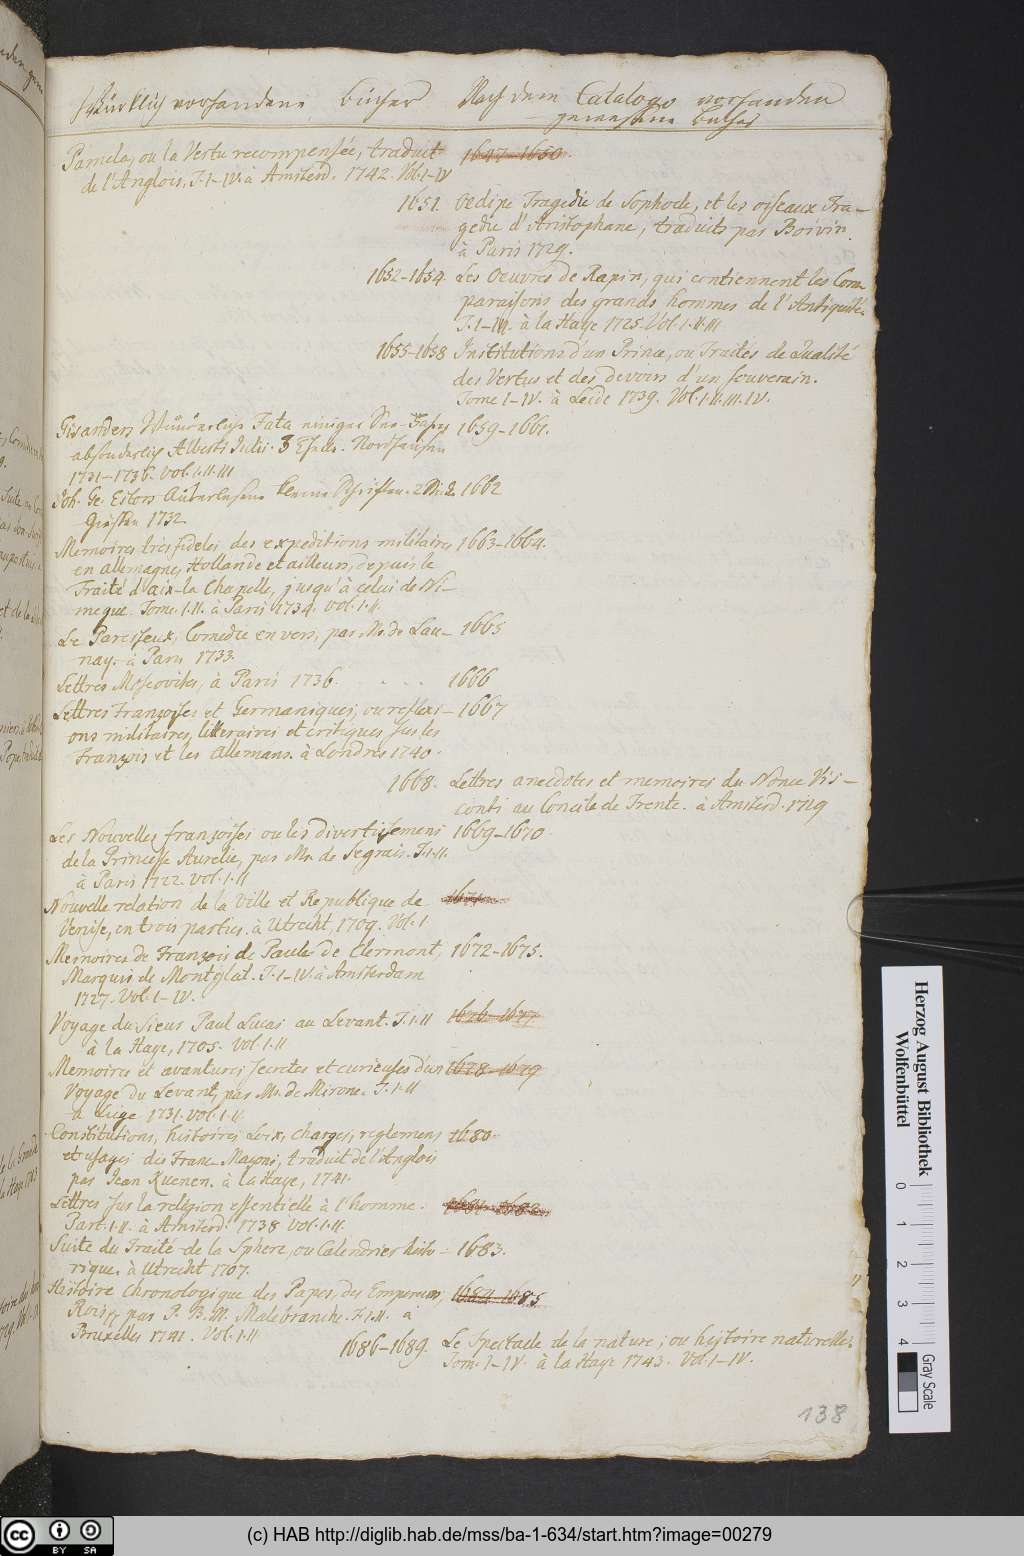 Würklich vorhandene bücher Nach dem Catalogo vorhanden
gewesene bücher
Pamela, ou la Vertu recompensée, traduit 1647-1650.
de l'Anglois, T. I-IV. à Amsterd. 1742. Vol. I-IV
1651. Oedipe Tragedie de Sophocle, et les oiseaux Tra-
gedie d'Aristophane, traduits par Boivin
à Paris 1729.
1652-1654. Les Oeuvres de Rapin, qui contiennent les Com-
paraisons des grands hommes de l'Antiquité.
T. I-III. à la Haye 1725. Vol. I. II. III
1655-1658 Institutions d'un Prince, ou Traités de Qualité
des Vertus et des devoirs d'un souverain.
Tome I-IV. à Leide 1739. Vol. I. II. III. IV.
Gisanders Wunderliche Fata einiger See-Fahrer 1659-1661.
absonderlich Alberti Julii. 3 Theile. Nordhausen
1731-1736. Vol. I. II. III
Joh. Ge. Estors Auserlesene kleine Schriften. 1662
Giessen 1732.
Memoires très fideles des expeditions militaires 1663-1664.
en allemagne, Hollande et ailleurs, depuis le
Traité d'aix-la Chapelle, jusqu'à celui de Ni-
meque. Tome. I. II. à Paris 1734. Vol. I. II.
Le Paresseux, Comedie en vers, par Mr. de Lau- 1665
nay. à Paris 1733.
Lettres Moscovites, à Paris 1736. . . . . 1666
Lettres Françoises et Germaniques, ou reflexi- 1667
ons militaires, litteraires et critiques sur les
François et les Allemans. à Londres 1740.
1668. Lettres anecdotes et memoires du Nonce Vis-
conti au Concile de Trente. à Amsterd. 1719
Les Nouvelles françoises ou les divertissemens 1669-1670.
de la Princesse Aurelie, par Mr. de Segrais. T. I. II.
à Paris 1722. Vol. I. II
Nouvelle relation de la Ville et Republique de 1671
Venise, en trois parties. à Utrecht, 1709. Vol. I.
Memoires de François de Paule de Clermont, 1672-1675.
Marquis de Montglat. T. I-IV. à Amsterdam
1727. Vol. I-IV.
Voyage du Sieur Paul Lucas au Levant. T. I. II 1676-1677
à la Haye, 1705. Vol. I. II
Memoires et avantures secretes et curieuses d'un 1678-1679
Voyage du Levant, par Mr. de Mirone. T. I. II
à Liege 1731. Vol. I. II.
Constitutions, histoires, Loix, charges, reglemens 1680.
et usages des Francs-Maçons, traduit de l'Anglois
par Jean Kuenen. à la Haye, 1741.
Lettres sur la religion essentielle à l'homme. 1681-1682
Part. I. II. à Amsterd. 1738 Vol. I. II.
Suite du Traité de la Sphere, ou Calendrier histo- 1683.
rique. à Utrecht 1707.
Histoire chronologique des Papes, des Empereurs, 1684-1685
Rois, par P. B. M. Malebranche. T. I. II. à
Bruxelles 1741. Vol. I. II
1686-1689. Le Spectacle de la nature; ou histoire naturelle.
Tom. I-IV. à la Haye 1743. Vol. I-IV.
138
Herzog August Bibliothek
Wolfenbüttel
0 1 2 3 4
Gray Scale
cc BY SA
(c) HAB http://diglib.hab.de/mss/ba-1-634/start.htm?image=00279